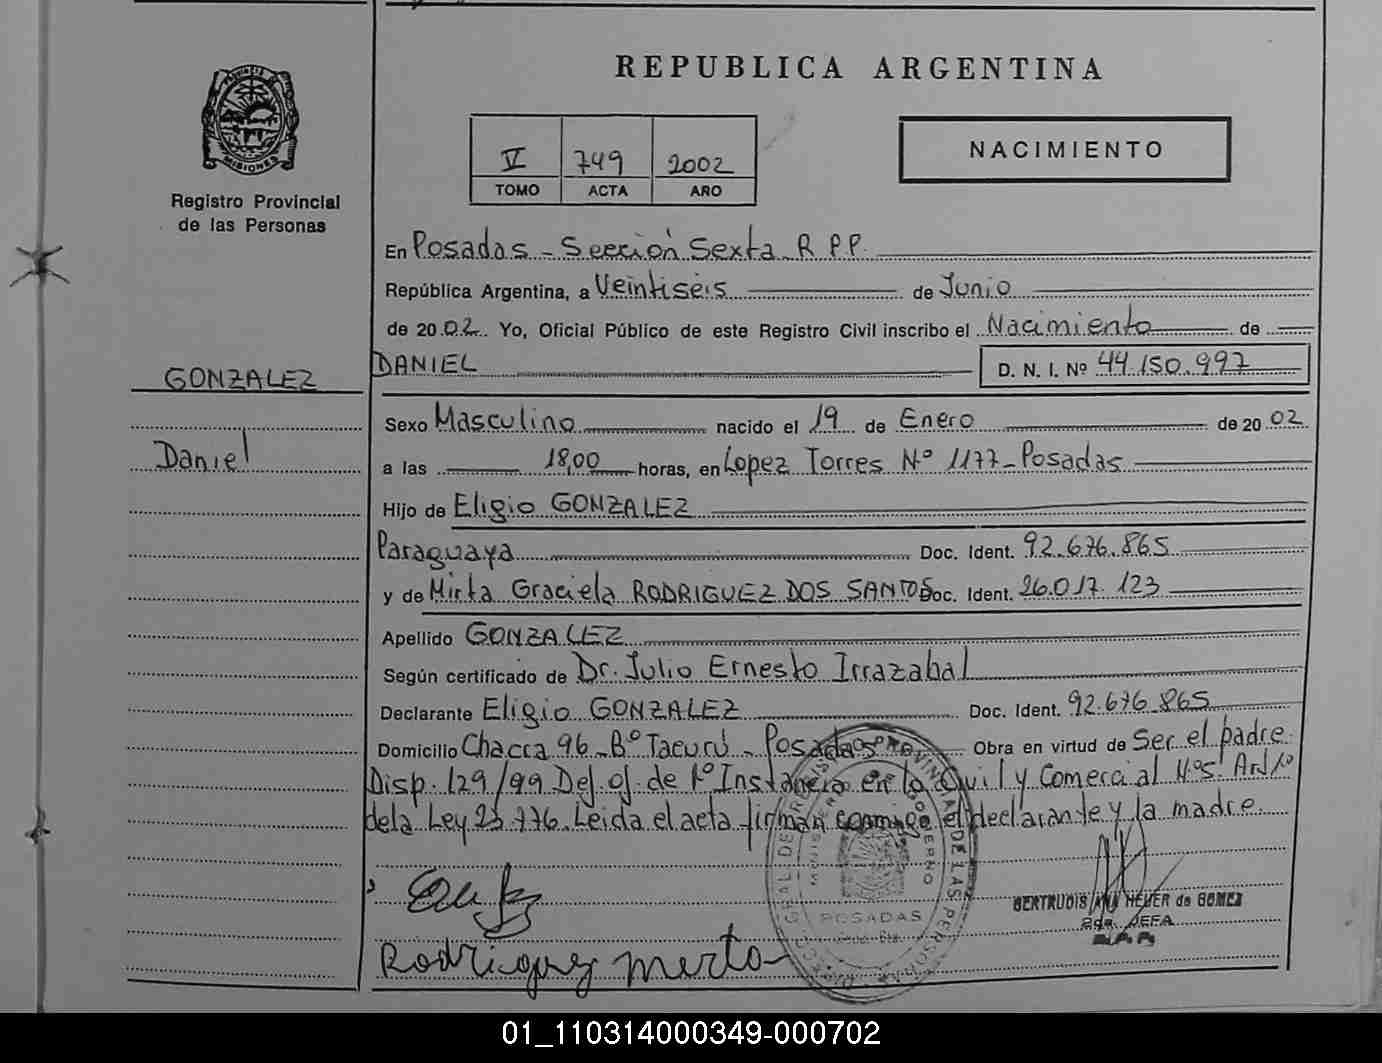 REPUBLICA ARGENTINA
PROVINCIA DE MISIONES
Registro Provincial
de las Personas
V 749 2002
TOMO ACTA AÑO
NACIMIENTO
En Posadas - Sección Sexta R.P.P.
República Argentina, a Veintiseis de Junio
de 2002. Yo, Oficial Público de este Registro Civil inscribo el Nacimiento de
GONZALEZ
DANIEL D. N. I. Nº 44.150.997
Sexo Masculino nacido el 19 de Enero de 2002
Daniel
a las 18,00 horas, en Lopez Torres Nº 1177 - Posadas
Hijo de Eligio GONZALEZ
Paraguaya Doc. Ident. 92.676.865
y de Mirta Graciela RODRIGUEZ DOS SANTOS Doc. Ident. 26.017.123
Apellido GONZALEZ
Según certificado de Dr. Julio Ernesto Irrazabal
Declarante Eligio GONZALEZ Doc. Ident. 92.676.865
Domicilio Chacra 96 - Bº Tacurú - Posadas Obra en virtud de Ser el padre.
Disp. 129/99 Def. of. de 1º Instancia en lo Civil y Comercial Nº5. Art 1º
de la Ley 23.776. Leida el acta firman conmigo el declarante y la madre.
GERTRUDIS ANA HEUER de GOMEZ
2da. JEFA
POSADAS
Rodriguez Mirta
01_110314000349-000702